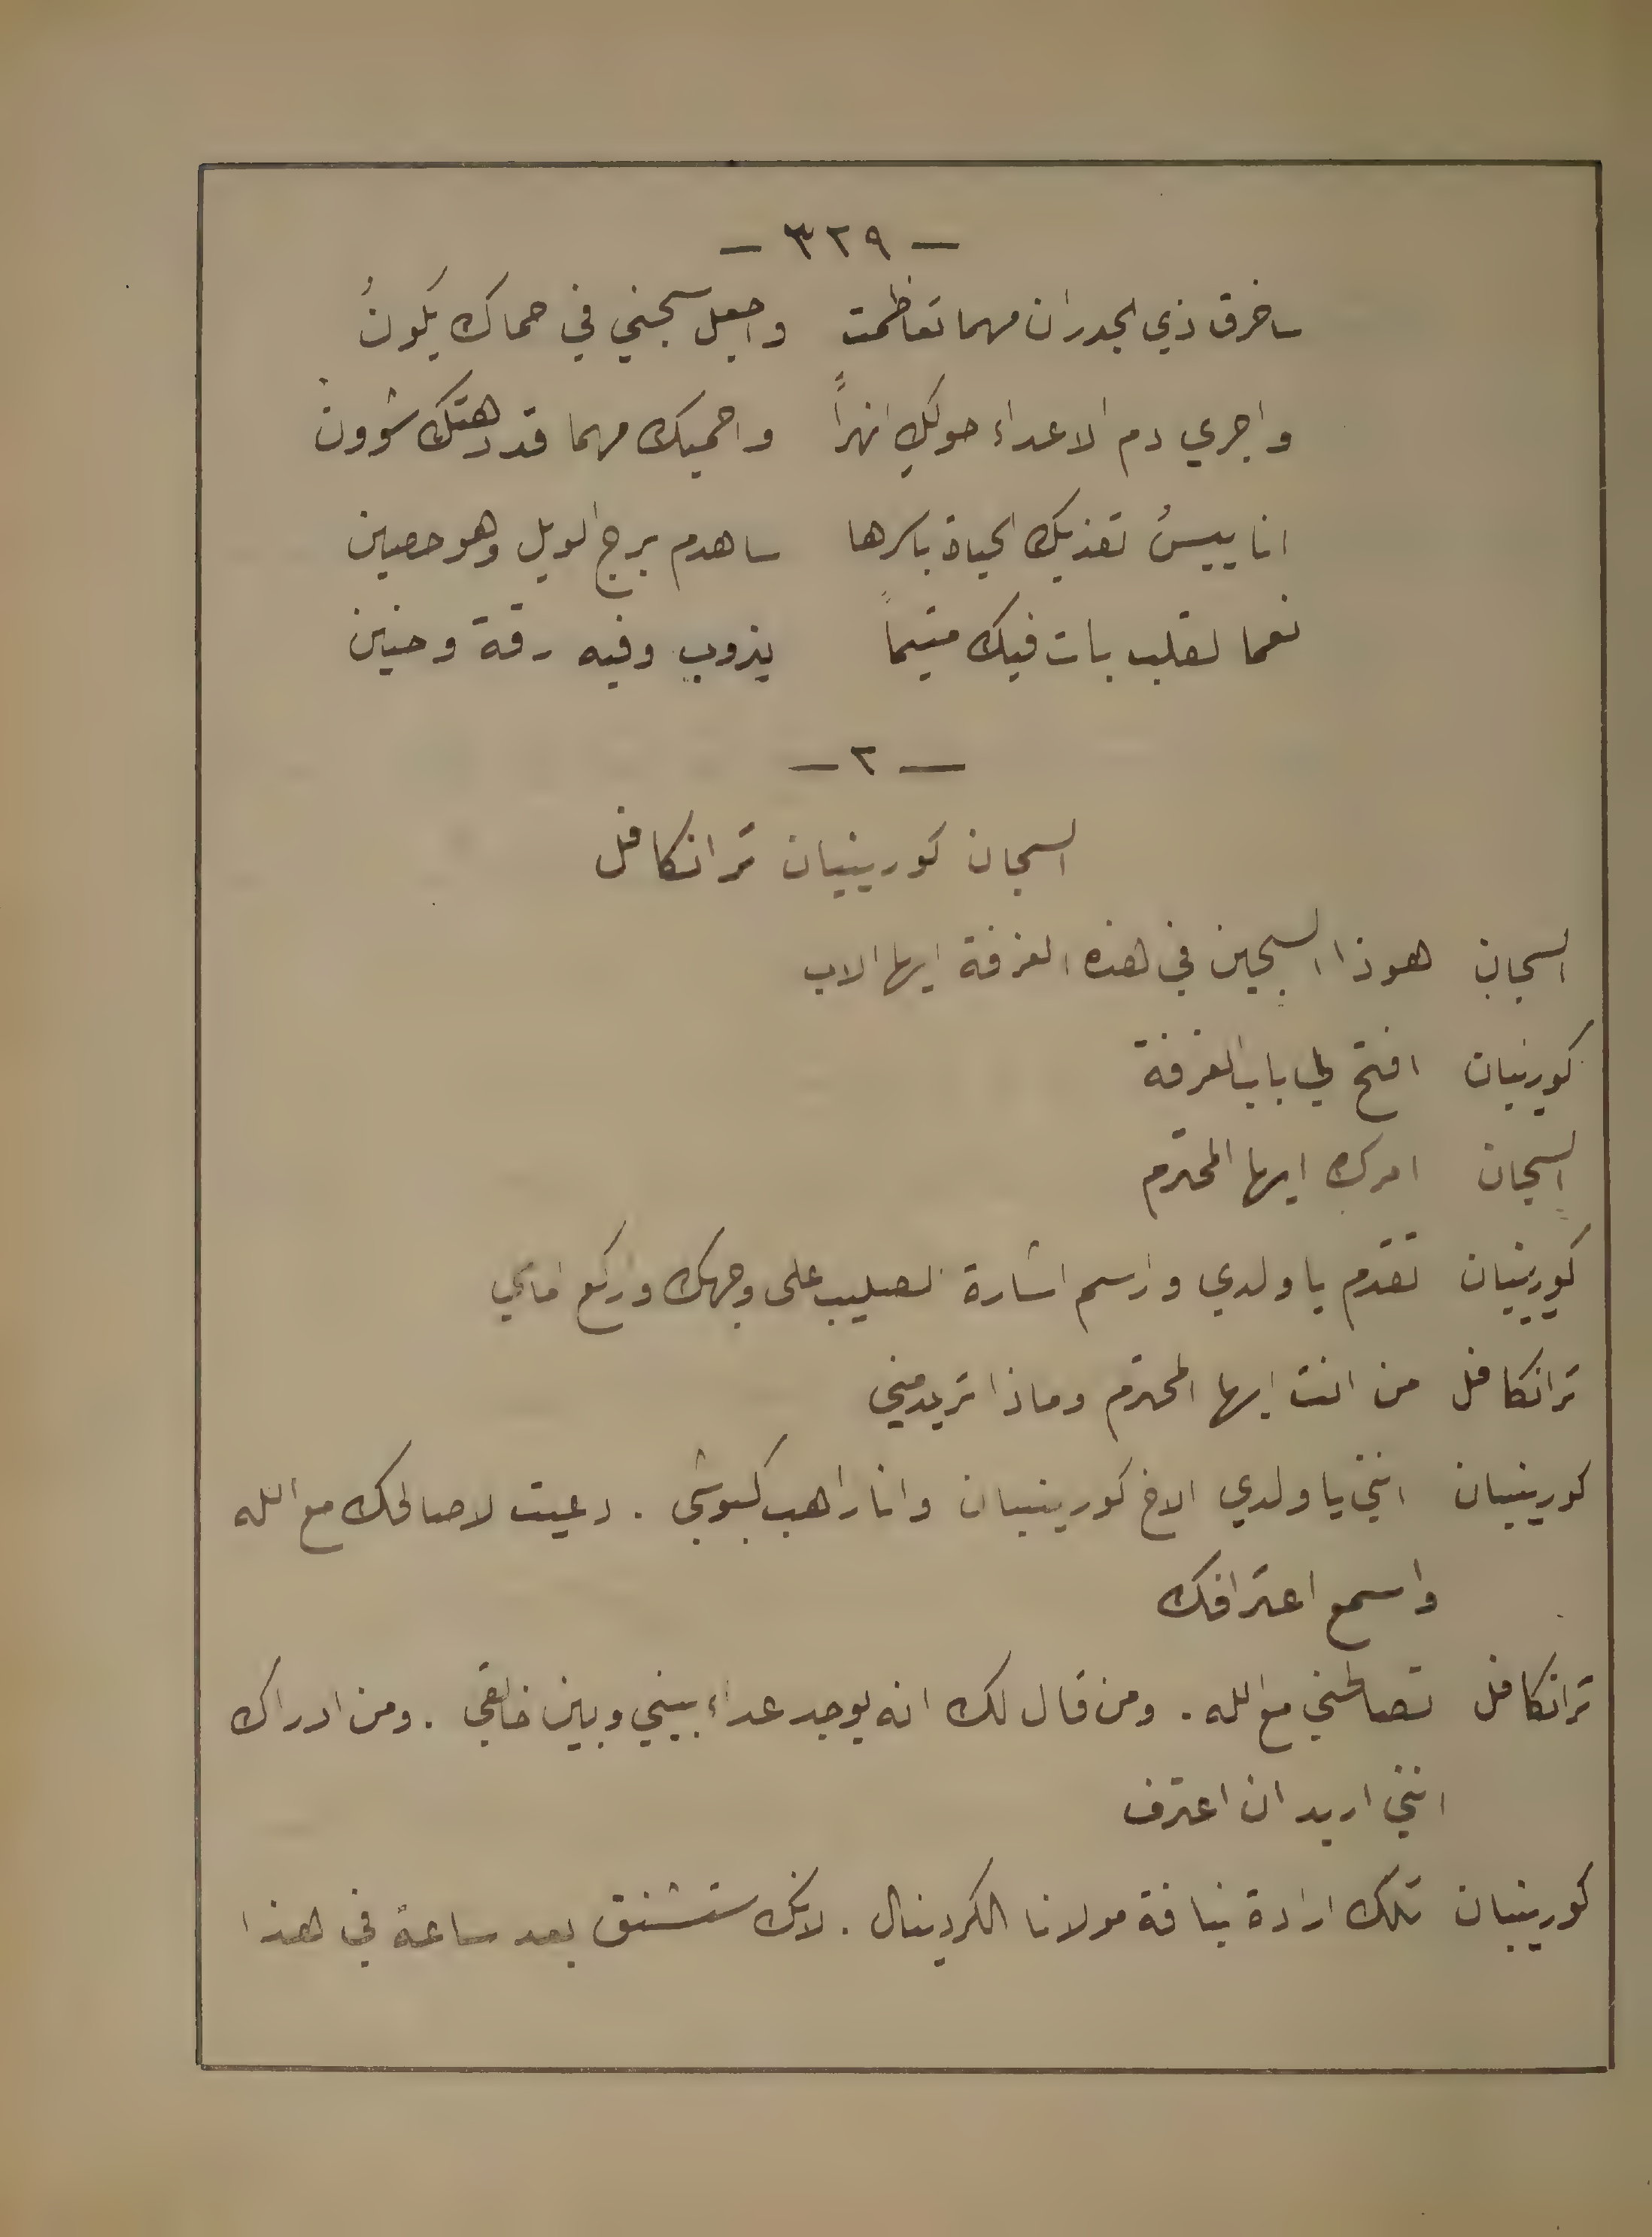 — ٣٢٩ —
ساخرق ذي الجدران مهما تعاظمت واجعل سجني في حماك يكونُ
واجري دم الاعداء حولكِ انهراً واحميك مهما قد دهتك شوون
انا ييسُ تفديك الحياة باسرها ساهدم برج الويل وهو حصين
نعما لقلب بات فيك متيماً يذوب وفيه رقة وحنين
— ٢ —
السجان كورينيان ترانكافل
السجان هوذا السجين في هذه الغرفة ايها الاب
كورينيان افتح لي باب الغرفة
السجان امرك ايها المحترم
كورينيان تقدم يا ولدي وارسم اشارة الصليب على وجهك واركع امامي
ترانكافل من انت ايها المحترم وماذا تريد مني
كورينيان انني يا ولدي الاخ كورينيان وانا راهب كبوشي . دعيت لاصالحك مع الله
واسمع اعترافك
ترانكافل تصالحني مع الله . ومن قال لك انه يوجد عداء بيني وبين خالقي . ومن ادراك
انني اريد ان اعترف
كورينيان تلك ارادة نيافة مولانا الكردينال . لانك ستشنق بعد ساعة في هذا